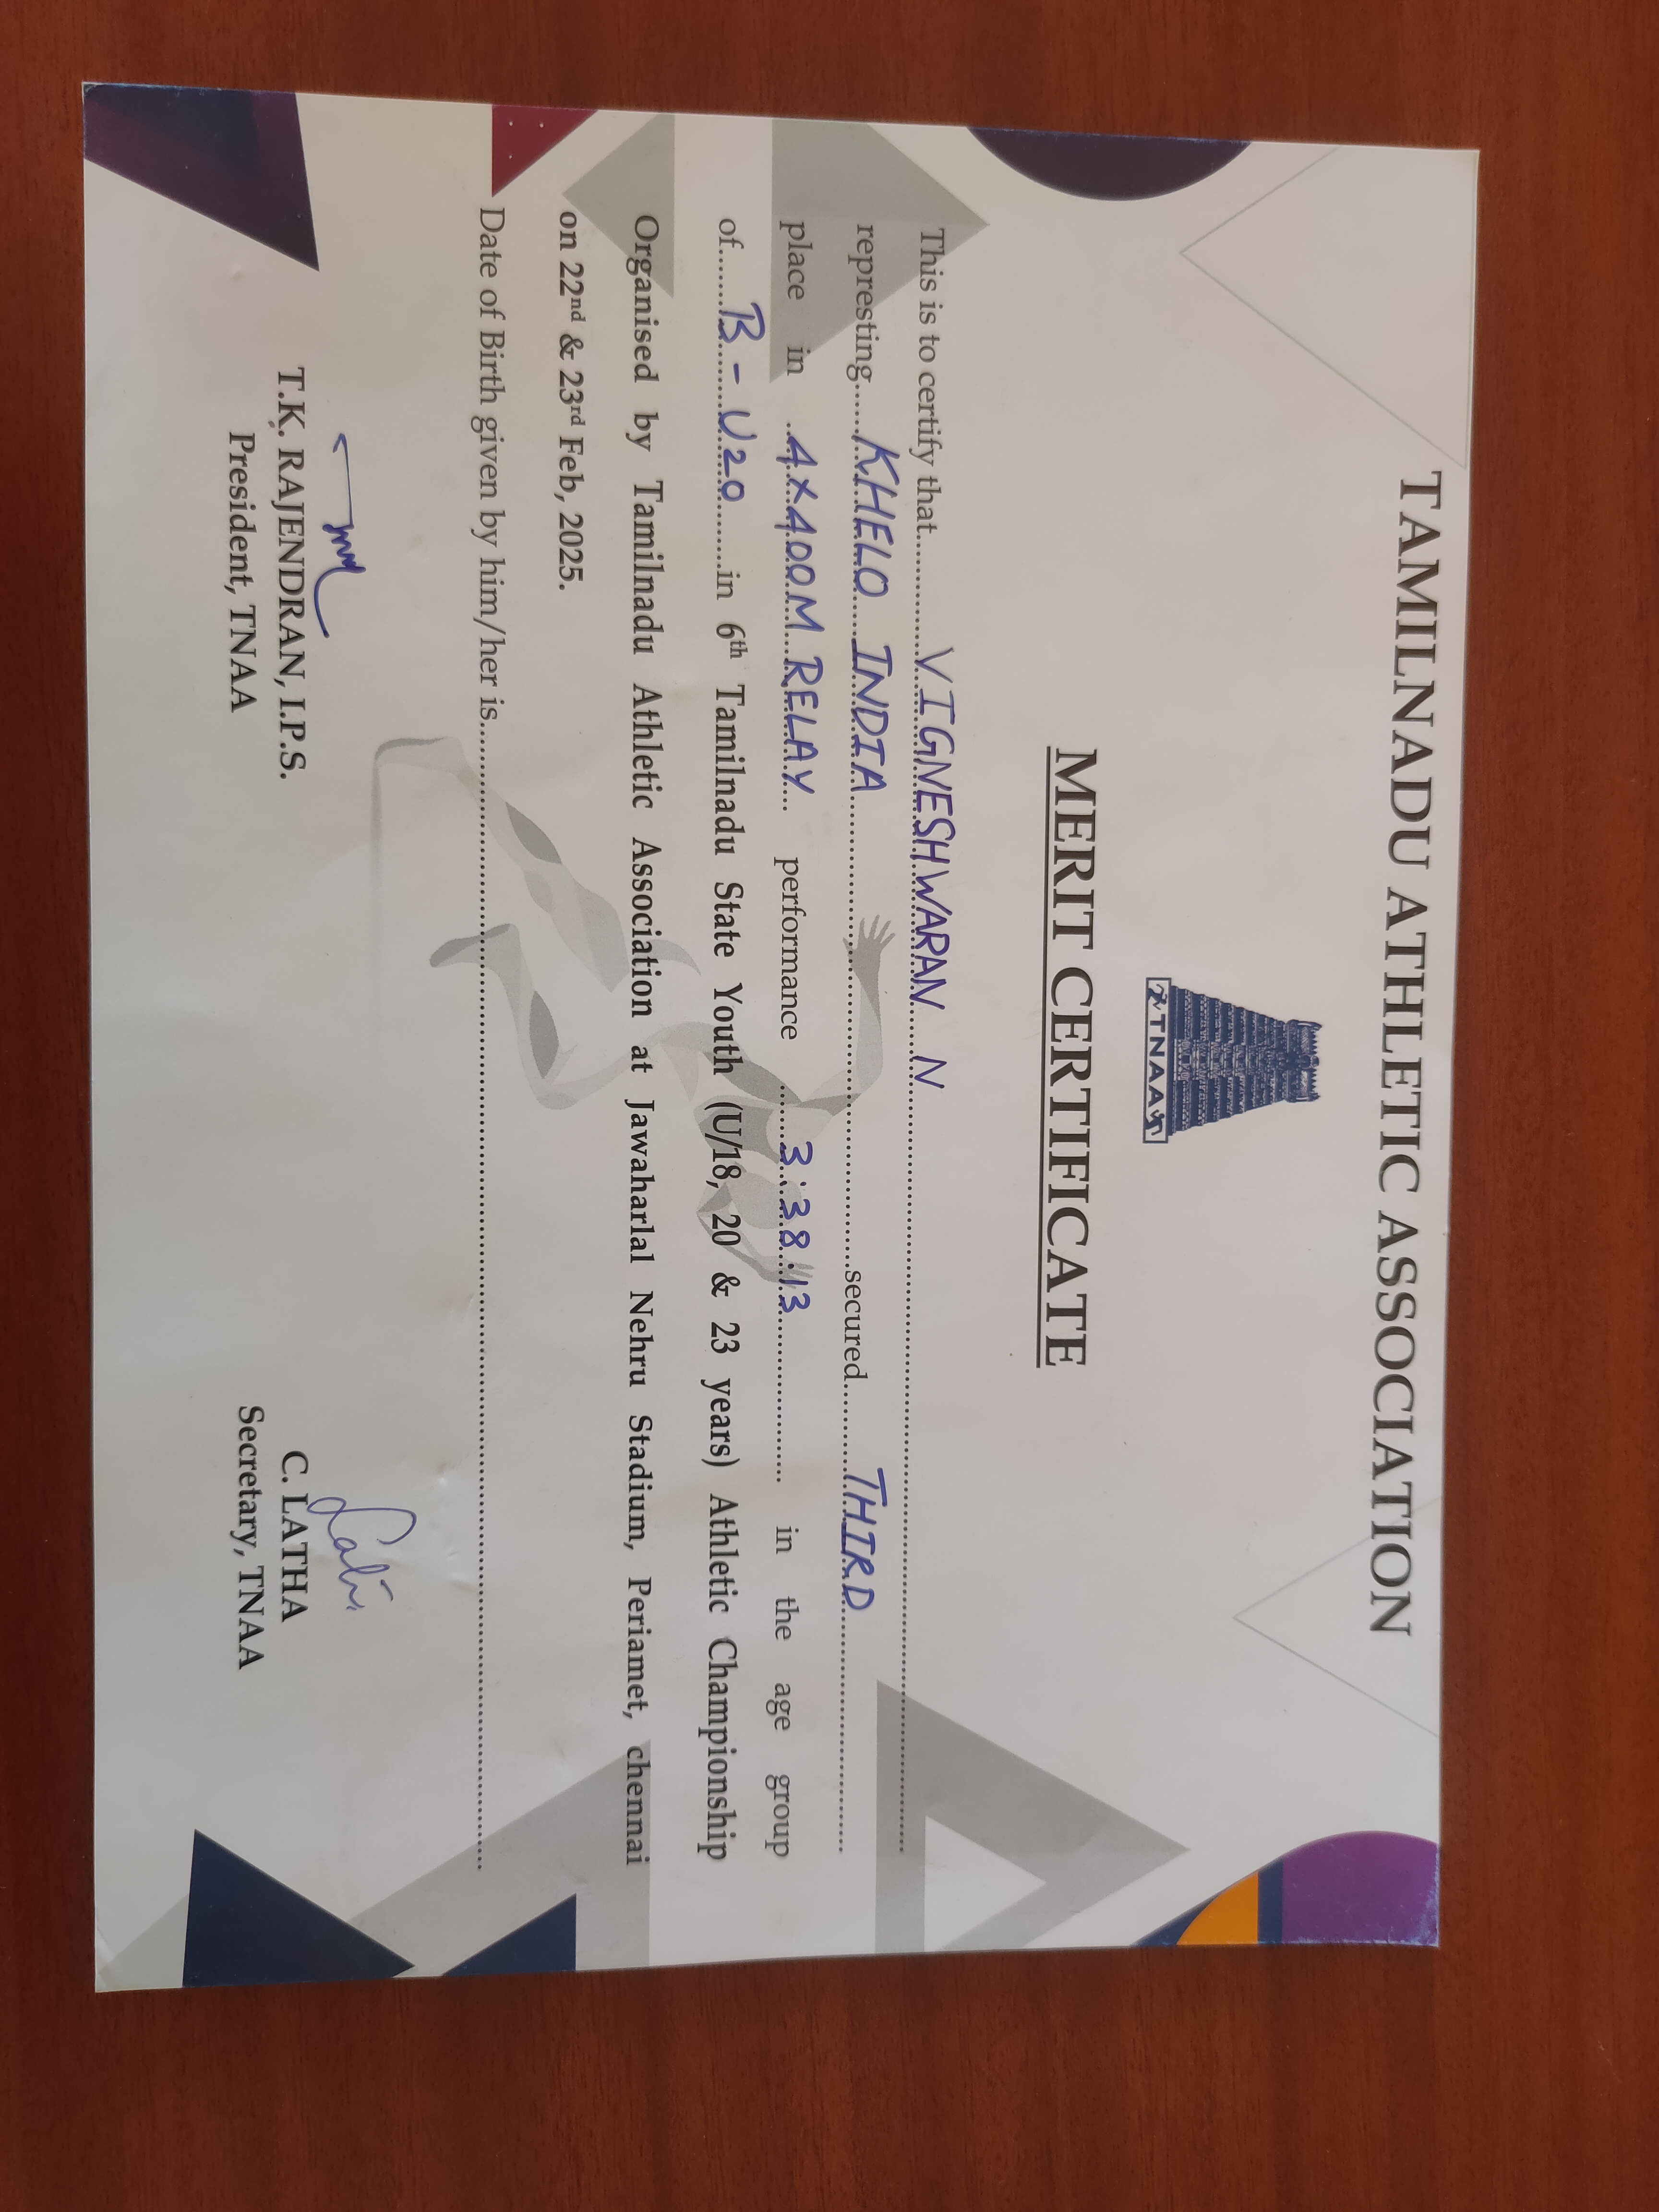 TAMILNADU ATHLETIC ASSOCIATION
TNAA
MERIT CERTIFICATE
This is to certify that VIGNESHWARAN N
represting KHELO INDIA secured THIRD
place in 4X400M RELAY performance 3:38:13 in the age group
of B-U20 in 6th Tamilnadu State Youth (U/18, 20 & 23 years) Athletic Championship
Organised by Tamilnadu Athletic Association at Jawaharlal Nehru Stadium, Periamet, chennai
on 22nd & 23rd Feb, 2025.
Date of Birth given by him/her is
T.K. RAJENDRAN, I.P.S.
President, TNAA
Latha
C. LATHA
Secretary, TNAA